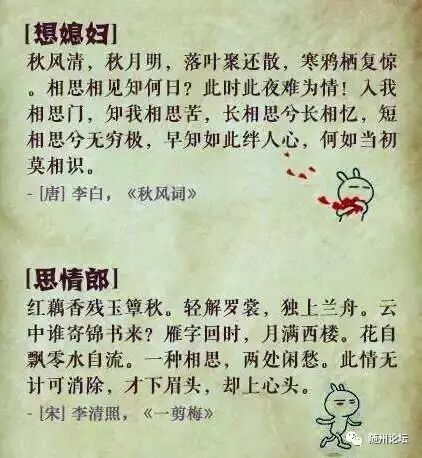 [想媳妇]
秋风清，秋月明，落叶聚还散，寒鸦栖复惊
。相思相见知何日？此时此夜难为情！入我
相思门，知我相思苦，长相思兮长相忆，短
相思兮无穷极，早知如此绊人心，何如当初
莫相识。
- [唐] 李白，《秋风词》
[思情郎]
红藕香残玉簟秋。轻解罗裳，独上兰舟。云
中谁寄锦书来？雁字回时，月满西楼。花自
飘零水自流。一种相思，两处闲愁。此情无
计可消除，才下眉头，却上心头。
- [宋] 李清照，《一剪梅》
随州论坛